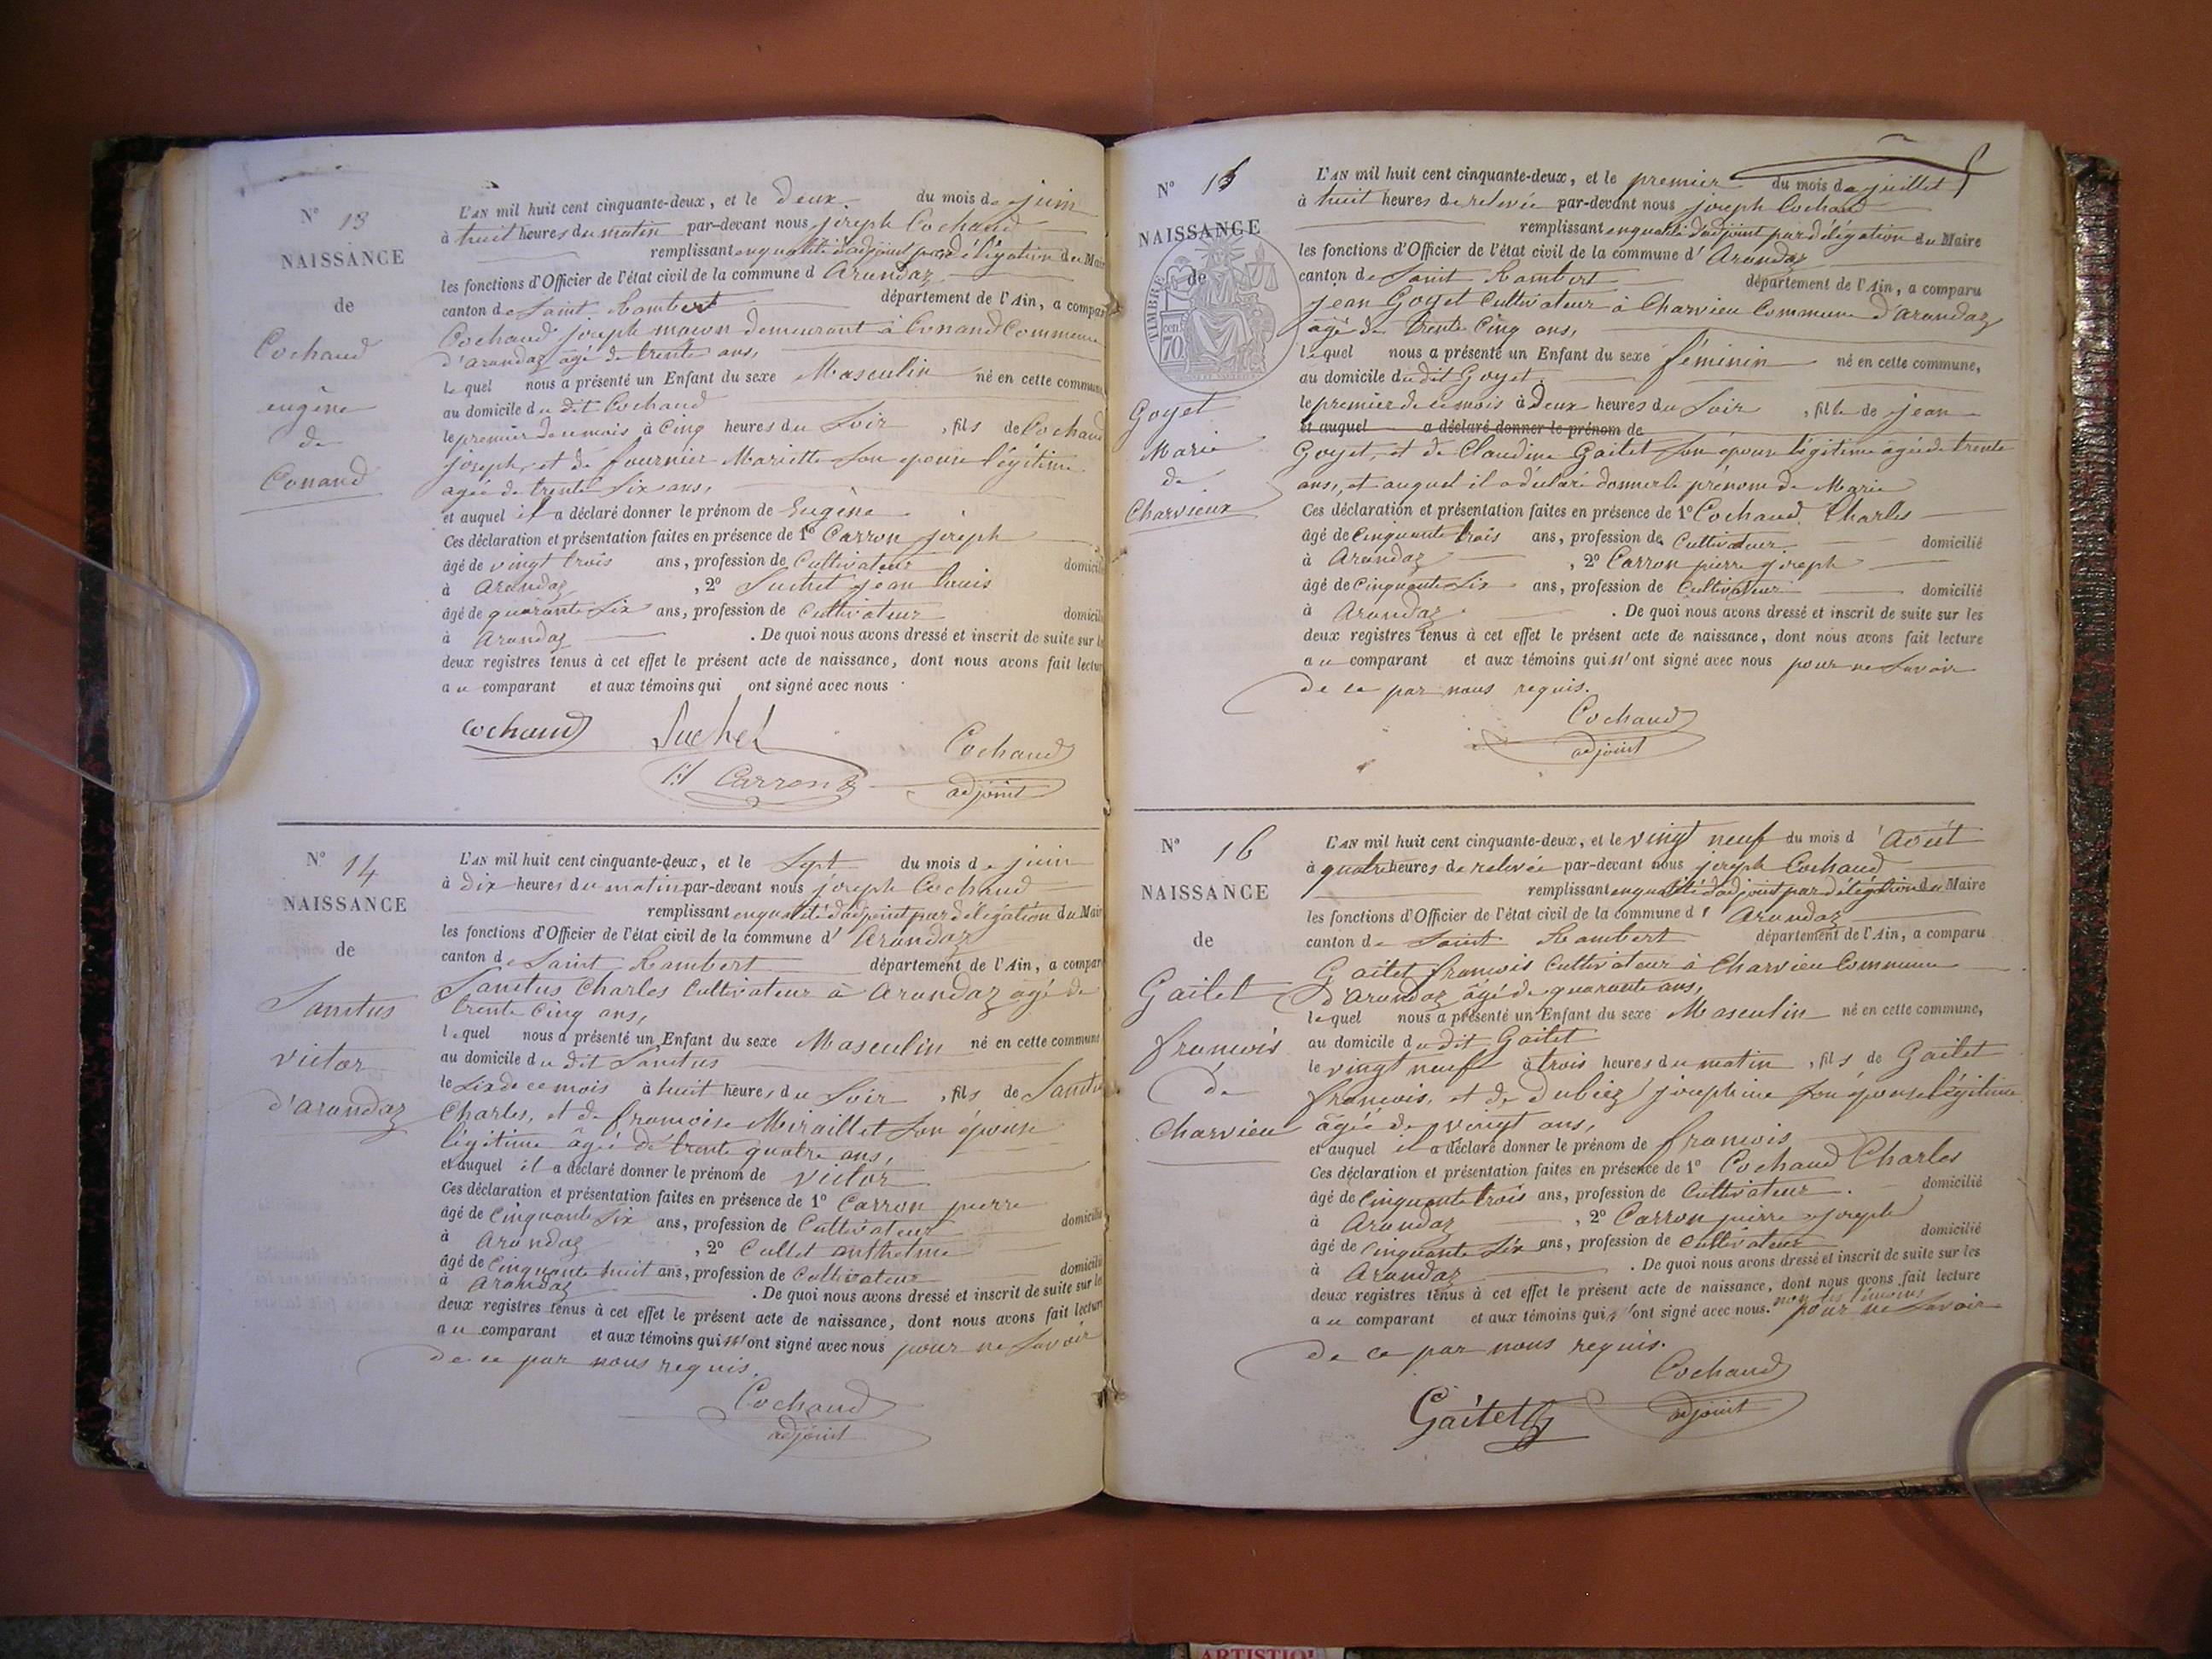 N° 13
NAISSANCE
de
Cochaud
eugène
de
Conand
L'AN mil huit cent cinquante-deux, et le deux du mois de juin
à huit heures du matin par-devant nous joseph Cochaud
remplissant en qualité d'adjoint par délégation du Mair
les fonctions d'Officier de l'état civil de la commune d Arandaz
canton de Saint Rambert département de l'Ain, a compar
Cochaud joseph maçon demeurant à Conand Commune
d'arandaz âgé de trente ans,
lequel nous a présenté un Enfant du sexe Masculin né en cette commune
au domicile du dit Cochaud
le premier de ce mois à Cinq heures du Soir , fils de Cochaud
joseph, et de fournier Mariette Son epouse légitime
agée de trente Six ans,
et auquel il a déclaré donner le prénom de Eugène
Ces déclaration et présentation faites en présence de 1° Carron joseph
âgé de vingt trois ans, profession de Cultivateur domicili
à Arandaz , 2° Suchet jean louis
âgé de quarante Six ans, profession de Cultivateur domicili
à Arandaz . De quoi nous avons dressé et inscrit de suite sur le
deux registres tenus à cet effet le présent acte de naissance, dont nous avons fait lectur
au comparant et aux témoins qui ont signé avec nous
Cochaud Suchet Cochaud
Carron adjoint
N° 14
NAISSANCE
de
Sanctus
victor
d'arandaz
L'AN mil huit cent cinquante-deux, et le Sept du mois de juin
à dix heures du matin par-devant nous joseph Cochaud
remplissant en qualité d'adjoint par délégation du Mair
les fonctions d'Officier de l'état civil de la commune d' Arandaz
canton de Saint Rambert département de l'Ain, a compar
Sanctus Charles Cultivateur à Arandaz âgé de
trente Cinq ans,
lequel nous a présenté un Enfant du sexe Masculin né en cette commune
au domicile du dit Sanctus
le Six de ce mois à huit heures du Soir , fils de Sanctus
Charles, et de françoise Miraillet Son épouse
légitime âgée de trente quatre ans,
et auquel il a déclaré donner le prénom de victor
Ces déclaration et présentation faites en présence de 1° Carron pierre
âgé de Cinquante Six ans, profession de Cultivateur domicilié
à Arandaz , 2° Cullet anthelme
âgé de Cinquante huit ans, profession de Cultivateur domicilié
à Arandaz . De quoi nous avons dressé et inscrit de suite sur le
deux registres tenus à cet effet le présent acte de naissance, dont nous avons fait lecture
au comparant et aux témoins qui n'ont signé avec nous pour ne Savoir
de ce par nous requis.
Cochaud
adjoint
N° 15
NAISSANCE
de
TIMBRE
cen 70
Goyet
Marie
de
Charvieux
L'AN mil huit cent cinquante-deux, et le premier du mois de juillet
à huit heures de relevée par-devant nous joseph Cochaud
remplissant en qualité d'adjoint par délégation du Maire
les fonctions d'Officier de l'état civil de la commune d' Arandaz
canton de Saint Rambert département de l'Ain, a comparu
jean Goyet Cultivateur à Charvieu Commune d'arandaz
âgé de trente Cinq ans,
lequel nous a présenté un Enfant du sexe féminin né en cette commune,
au domicile du dit Goyet
le premier de ce mois à Deux heures du Soir , fille de jean
et auquel a déclaré donner le prénom de
Goyet, et de Claudine Gaitet Son épouse légitime âgée de trente
ans, et auquel il a déclaré donner le prénom de Marie
Ces déclaration et présentation faites en présence de 1° Cochaud Charles
âgé de Cinquante trois ans, profession de Cultivateur domicilié
à Arandaz , 2° Carron pierre joseph
âgé de Cinquante Six ans, profession de Cultivateur domicilié
à Arandaz . De quoi nous avons dressé et inscrit de suite sur les
deux registres tenus à cet effet le présent acte de naissance, dont nous avons fait lecture
au comparant et aux témoins qui n'ont signé avec nous pour ne Savoir
de ce par nous requis.
Cochaud
adjoint
N° 16
NAISSANCE
de
Gaitet
françois
de
Charvieu
L'AN mil huit cent cinquante-deux, et le vingt neuf du mois d' Août
à quatre heures de relevée par-devant nous joseph Cochaud
remplissant en qualité d'adjoint par délégation du Maire
les fonctions d'Officier de l'état civil de la commune d' Arandaz
canton de Saint Rambert département de l'Ain, a comparu
Gaitet françois Cultivateur à Charvieu Commune
d'Arandaz âgé de quarante ans,
lequel nous a présenté un Enfant du sexe Masculin né en cette commune,
au domicile du dit Gaitet
le vingt neuf à trois heures du matin , fils de Gaitet
françois, et de Dubiez josephine Son épouse légitime
âgée de vingt ans,
et auquel il a déclaré donner le prénom de françois
Ces déclaration et présentation faites en présence de 1° Cochaud Charles
âgé de Cinquante trois ans, profession de Cultivateur domicilié
à Arandaz , 2° Carron pierre joseph
âgé de Cinquante Six ans, profession de Cultivateur domicilié
à Arandaz . De quoi nous avons dressé et inscrit de suite sur les
deux registres tenus à cet effet le présent acte de naissance, dont nous avons fait lecture
au comparant et aux témoins qui ont signé avec nous. non les témoins pour ne Savoir
de ce par nous requis.
Cochaud
Gaitet adjoint
ARTISTIQ